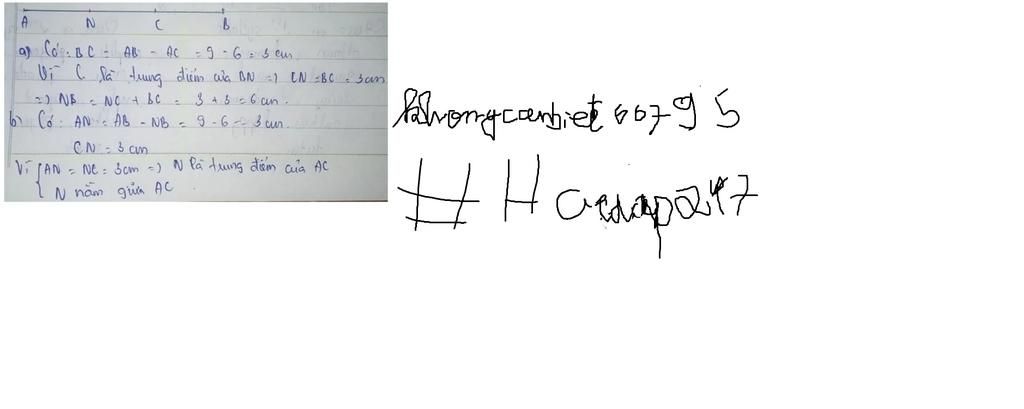 A N C B
a) Có: BC = AB - AC = 9 - 6 = 3 cm
Vì C là trung điểm của BN => CN = BC = 3cm
=> NB = NC + BC = 3 + 3 = 6 cm.
b) Có: AN = AB - NB = 9 - 6 = 3 cm.
CN = 3 cm
Vì { AN = NC = 3cm => N là trung điểm của AC
N nằm giữa AC
khongcanbiet66795
# Hoidap247